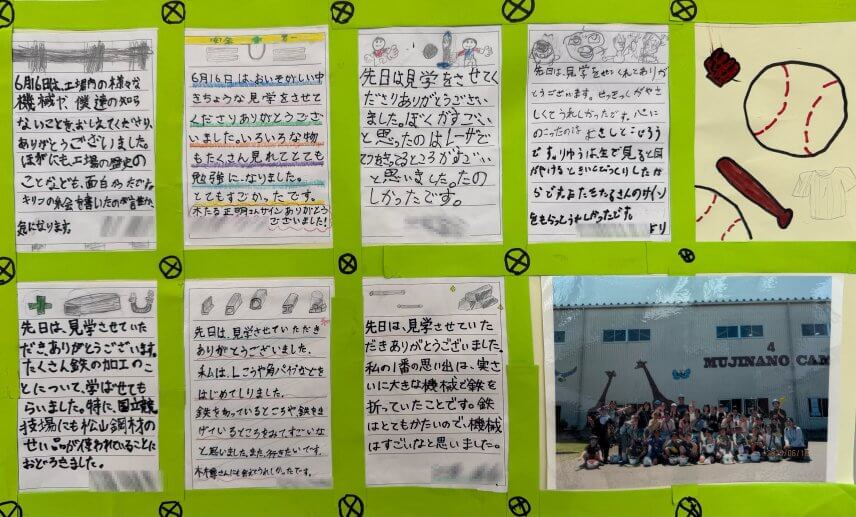 6月16日は、工場内の様々な
機械や、僕達の知ら
ないことをおしえてくださり、
ありがとうございました。
ほかにも工場の歴史の
ことなども、面白かったです。
キリンの絵を書いたのが
気になります。
安全 第一
6月16日は、おいそがしい中
きちょうな見学をさせて
くださりありがとうござ
いました。いろいろな物
もたくさん見れてとても
勉強になりました。
とてもすごかったです。
木たる正明さんサインありがとう
ございました!
先日は見学をさせてく
ださりありがとうござい
ました。ぼくがすごい
と思ったのはレーザーで
てつをきるところがすごい
と思いました。たの
しかったです。
先日は、見学をせてくれてありが
とうございます。せっきゃくがやさ
しくてうれしかったです。心に
のこったのは
です。りゆうは生で見ると目
がやけるときいてびっくりしたか
らです。またきたるさんのサイン
をもらってうれしかったです。
より
先日は、見学させていた
だきありがとうございます。
たくさん鉄の加工のこ
とについて、学ばせても
らいました。特に、国立競
技場にも松山鋼材の
せい品が使われていることに
おどろきました。
先日は、見学させていただき
ありがとうございました。
私は、Lこうや角パイプなどを
はじめてしりました。
鉄を切っているところや鉄をま
げているところをみてすごいな
と思いました。また、行きたいです。
先日は、見学させていた
だきありがとうございました。
私の1番の思い出は、実さ
いに大きな機械で鉄を
折っていたことです。鉄
はとてもかたいので、機械
はすごいなと思いました。
4
MUJINANO CAM